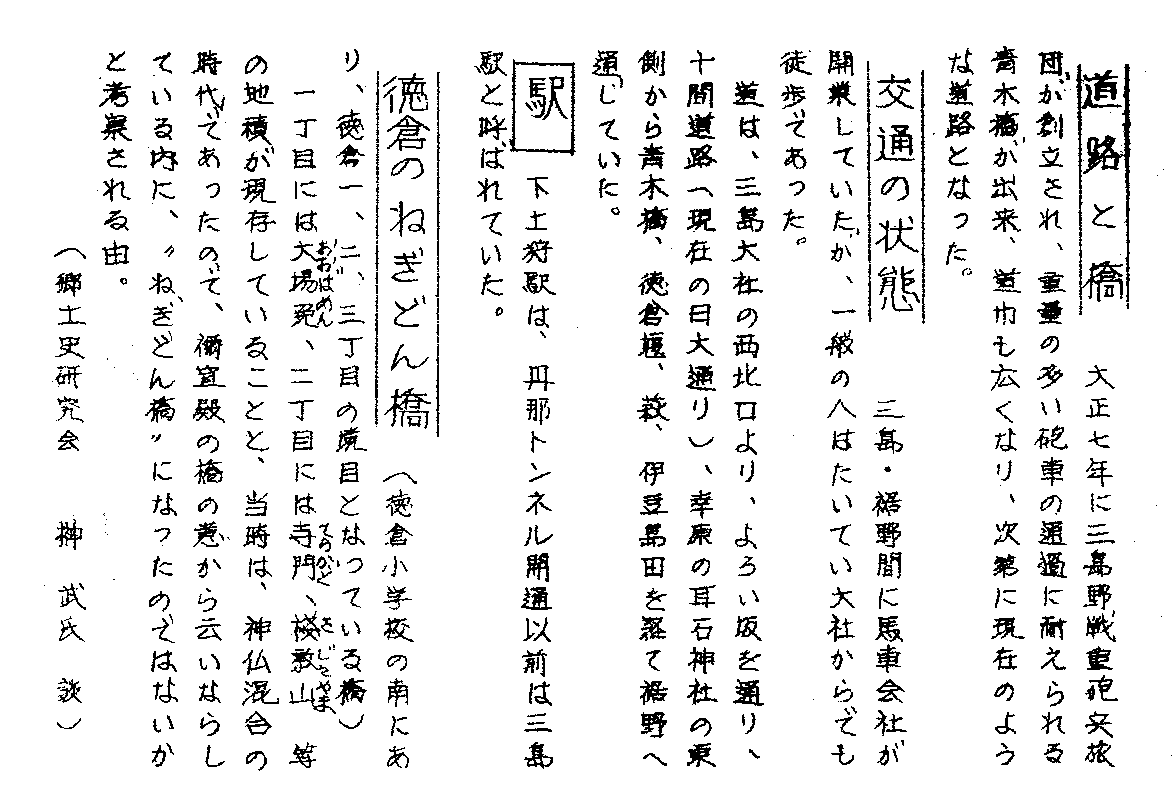 道路と橋 大正七年に三島野戦重砲兵旅
団が創立され、重量の多い砲車の通過に耐えられる
青木橋が出来、道巾も広くなり、次第に現在のよう
な道路となった。
交通の状態 三島・裾野間に馬車会社が
開業していたが、一般の人はたいてい大社からでも
徒歩であった。
道は、三島大社の西北口より、よろい坂を通り、
十間道路(現在の日大通り)、幸原の耳石神社の東
側から青木橋、徳倉堰、萩、伊豆島田を経て裾野へ
通じていた。
駅 下土狩駅は、丹那トンネル開通以前は三島
駅と呼ばれていた。
徳倉のねぎどん橋 (徳倉小学校の南にあ
り、徳倉一、二、三丁目の境目となっている橋)
一丁目には大場免、二丁目には寺門、桜敷山 等
おおばめん てらかど
の地積が現存していることと、当時は、神仏混合の
時代であったので、禰宜殿の橋の意から云いならし
ている内に、〝ねぎどん橋〟になったのではないか
と考察される由。
(郷土史研究会 榊 武氏 談)